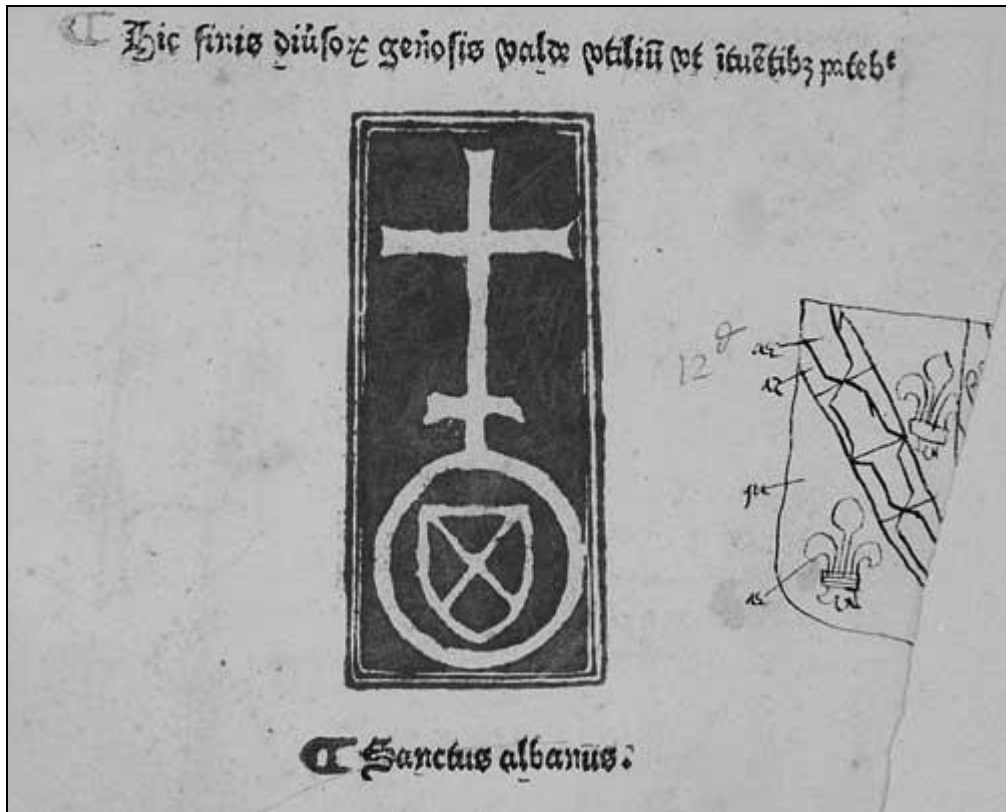 ¶ Hic finis diũsoꝝ geño­sis valde vtiliũ vt ĩtuẽtibꝫ patebᵗ
12 d
¶ Sanctus albanus.